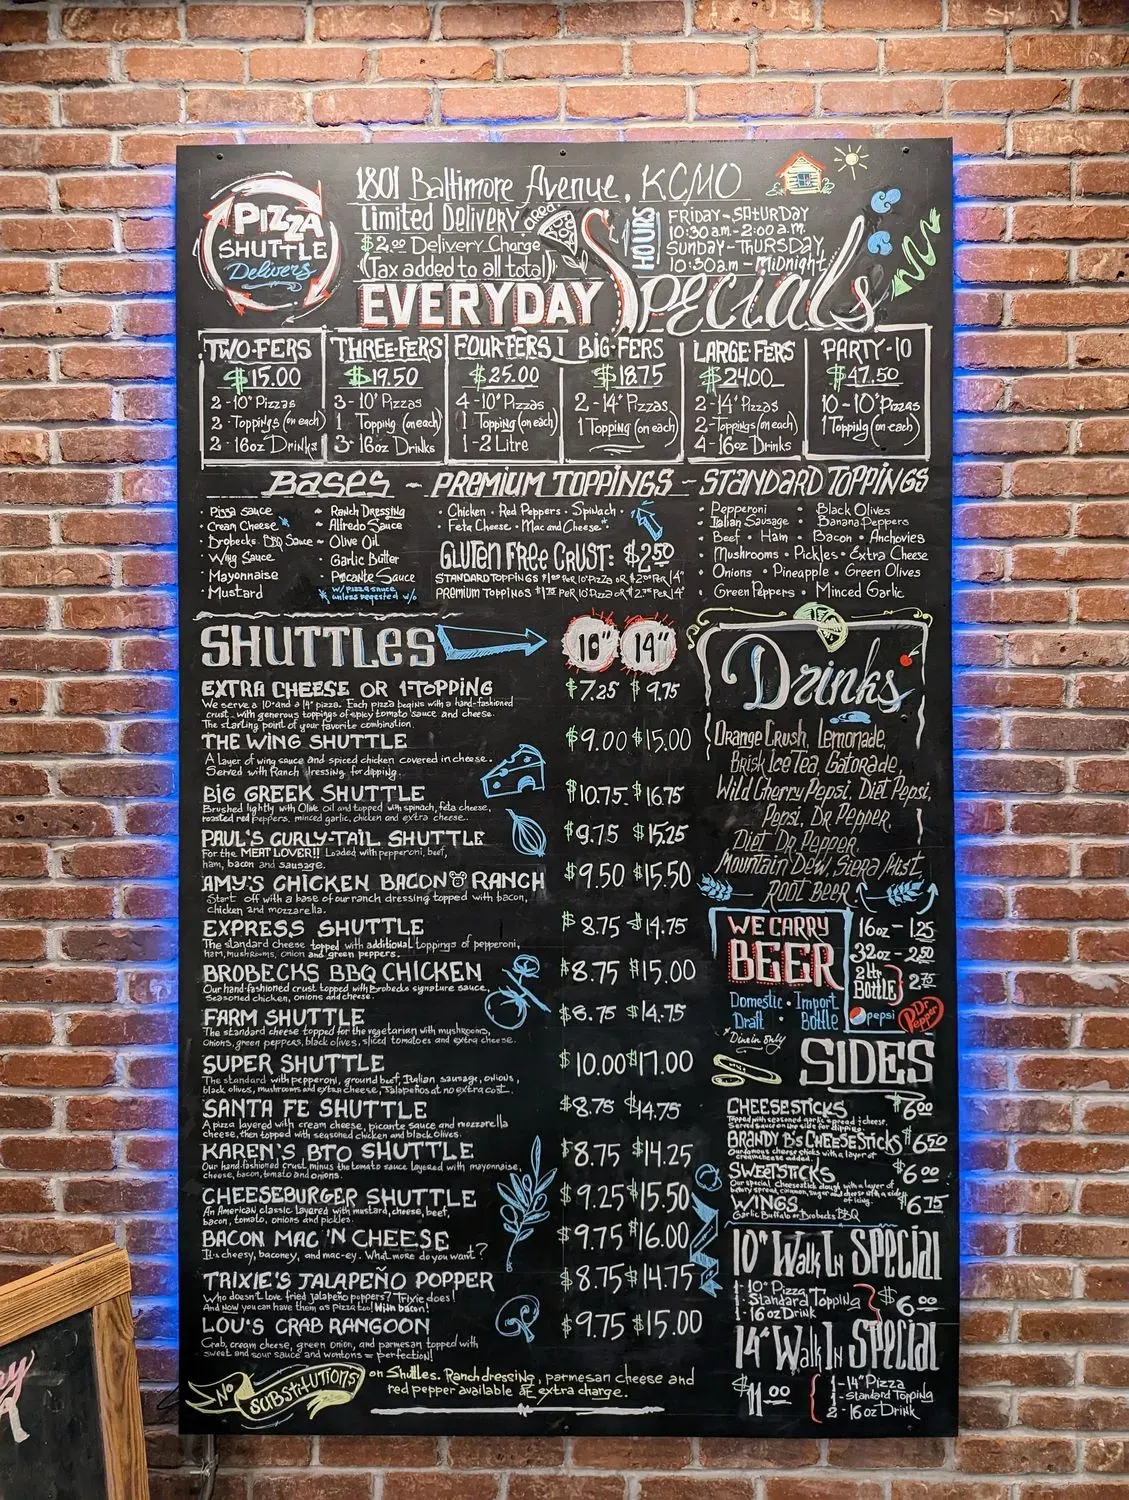 PIZZA
SHUTTLE
Delivers
1801 Baltimore Avenue, KCMO
Limited Delivery area
$2.00 Delivery Charge
(Tax added to all total)
HOURS
FRIDAY-SATURDAY
10:30 a.m.-2:00 a.m.
SUNDAY-THURSDAY,
10:30am-MIDNIGHT
EVERYDAY Specials
TWO-FERS
$15.00
2-10" Pizzas
2-Toppings (on each)
2-16oz Drinks
THREE-FERS
$19.50
3-10" Pizzas
1 Topping (on each)
3-16oz Drinks
FOUR-FERS
$25.00
4-10" Pizzas
1 Topping (on each)
1-2 Litre
BIG-FERS
$18.75
2-14" Pizzas
1 Topping (on each)
LARGE-FERS
$24.00
2-14" Pizzas
2-Toppings (on each)
4-16oz Drinks
PARTY-10
$47.50
10-10" Pizzas
1 Topping (on each)
BASES - PREMIUM TOPPINGS - STANDARD TOPPINGS
• Pizza sauce
• Cream Cheese *
• Brobecks BBQ Sauce
• Wing Sauce
• Mayonnaise
• Mustard
• Ranch Dressing
• Alfredo Sauce
• Olive Oil
• Garlic Butter
• Picante Sauce
* w/ pizza sauce
unless reqested w/o
• Chicken • Red Peppers • Spinach •
• Feta Cheese • Mac and Cheese*
GLUTEN FREE CRUST: $2.50
STANDARD TOPPINGS $1.00 PER 10" PIZZA OR $2.00 PER 14"
PREMIUM TOPPINGS $1.75 PER 10" PIZZA OR $2.75 PER 14"
• Pepperoni • Black Olives
• Italian Sausage • Banana Peppers
• Beef • Ham • Bacon • Anchovies
• Mushrooms • Pickles • Extra Cheese
• Onions • Pineapple • Green Olives
• Green Peppers • Minced Garlic
SHUTTLES 10" 14"
EXTRA CHEESE OR 1-TOPPING $7.25 $9.75
We serve a 10" and a 14" pizza. Each pizza begins with a hand-fashioned
crust with generous toppings of spicy tomato sauce and cheese.
The starting point of your favorite combination.
THE WING SHUTTLE $9.00 $15.00
A layer of wing sauce and spiced chicken covered in cheese.
Served with Ranch Dressing for dipping.
BIG GREEK SHUTTLE $10.75 $16.75
Brushed lightly with Olive oil and topped with spinach, feta cheese,
roasted red peppers, minced garlic, chicken and extra cheese.
PAUL'S CURLY-TAIL SHUTTLE $9.75 $15.25
For the MEAT LOVER!! Loaded with pepperoni, beef,
ham, bacon and sausage.
AMY'S CHICKEN BACON RANCH $9.50 $15.50
Start off with a base of our ranch dressing topped with bacon,
chicken and mozzarella.
EXPRESS SHUTTLE $8.75 $14.75
The standard cheese topped with additional toppings of pepperoni,
ham, mushrooms, onion and green peppers.
BROBECKS BBQ CHICKEN $8.75 $15.00
Our hand-fashioned crust topped with Brobecks signature sauce,
seasoned chicken, onions and cheese.
FARM SHUTTLE $8.75 $14.75
The standard cheese topped for the vegetarian with mushrooms,
onions, green peppers, black olives, sliced tomatoes and extra cheese.
SUPER SHUTTLE $10.00 $17.00
The standard with pepperoni, ground beef, Italian sausage, onions,
black olives, mushrooms and extra cheese, Jalapeños at no extra cost.
SANTA FE SHUTTLE $8.75 $14.75
A pizza layered with cream cheese, picante sauce and mozzarella
cheese, then topped with seasoned chicken and black olives.
KAREN'S BTO SHUTTLE $8.75 $14.25
Our hand-fashioned crust minus the tomato sauce layered with mayonnaise,
cheese, bacon, tomato and onions.
CHEESEBURGER SHUTTLE $9.25 $15.50
An American classic layered with mustard, cheese, beef,
bacon, tomato, onions and pickles.
BACON MAC 'N CHEESE $9.75 $16.00
It's cheesy, baconey, and mac-ey. What more do you want?
TRIXIE'S JALAPEÑO POPPER $8.75 $14.75
Who doesn't love fried jalapeño poppers? Trixie does!
And now you can have them as pizza too! With bacon!
LOU'S CRAB RANGOON $9.75 $15.00
Crab, cream cheese, green onion, and parmesan topped with
sweet and sour sauce and wontons = perfection!
NO SUBSTITUTIONS on Shuttles. Ranch dressing, parmesan cheese and
red pepper available at extra charge.
Drinks
Orange Crush, Lemonade,
Brisk Ice Tea, Gatorade,
Wild Cherry Pepsi, Diet Pepsi,
Pepsi, Dr Pepper,
Diet Dr Pepper,
Mountain Dew, Sierra Mist
ROOT BEER
WE CARRY
BEER
Domestic • Import
Draft • Bottle
*Dine in only
16oz - 1.25
32oz - 2.50
2 Ltr
Bottle 2.75
pepsi
Dr. Pepper
SIDES
CHEESESTICKS $6.00
Topped with seasoned garlic spread & cheese.
Served sauce on the side for dipping.
BRANDY B'S CHEESESTICKS $6.50
Our famous cheese sticks with a layer of
creamcheese added.
SWEETSTICKS $6.00
Our special cheesestick dough with a layer of
of icing.
WINGS $6.75
Garlic Buffalo or Brobecks BBQ
10" Walk In Special
1-10" Pizza
1-Standard Topping
1-16oz Drink
$6.00
14" Walk In Special
$11.00
1-14" Pizza
1-Standard Topping
2-16oz Drink